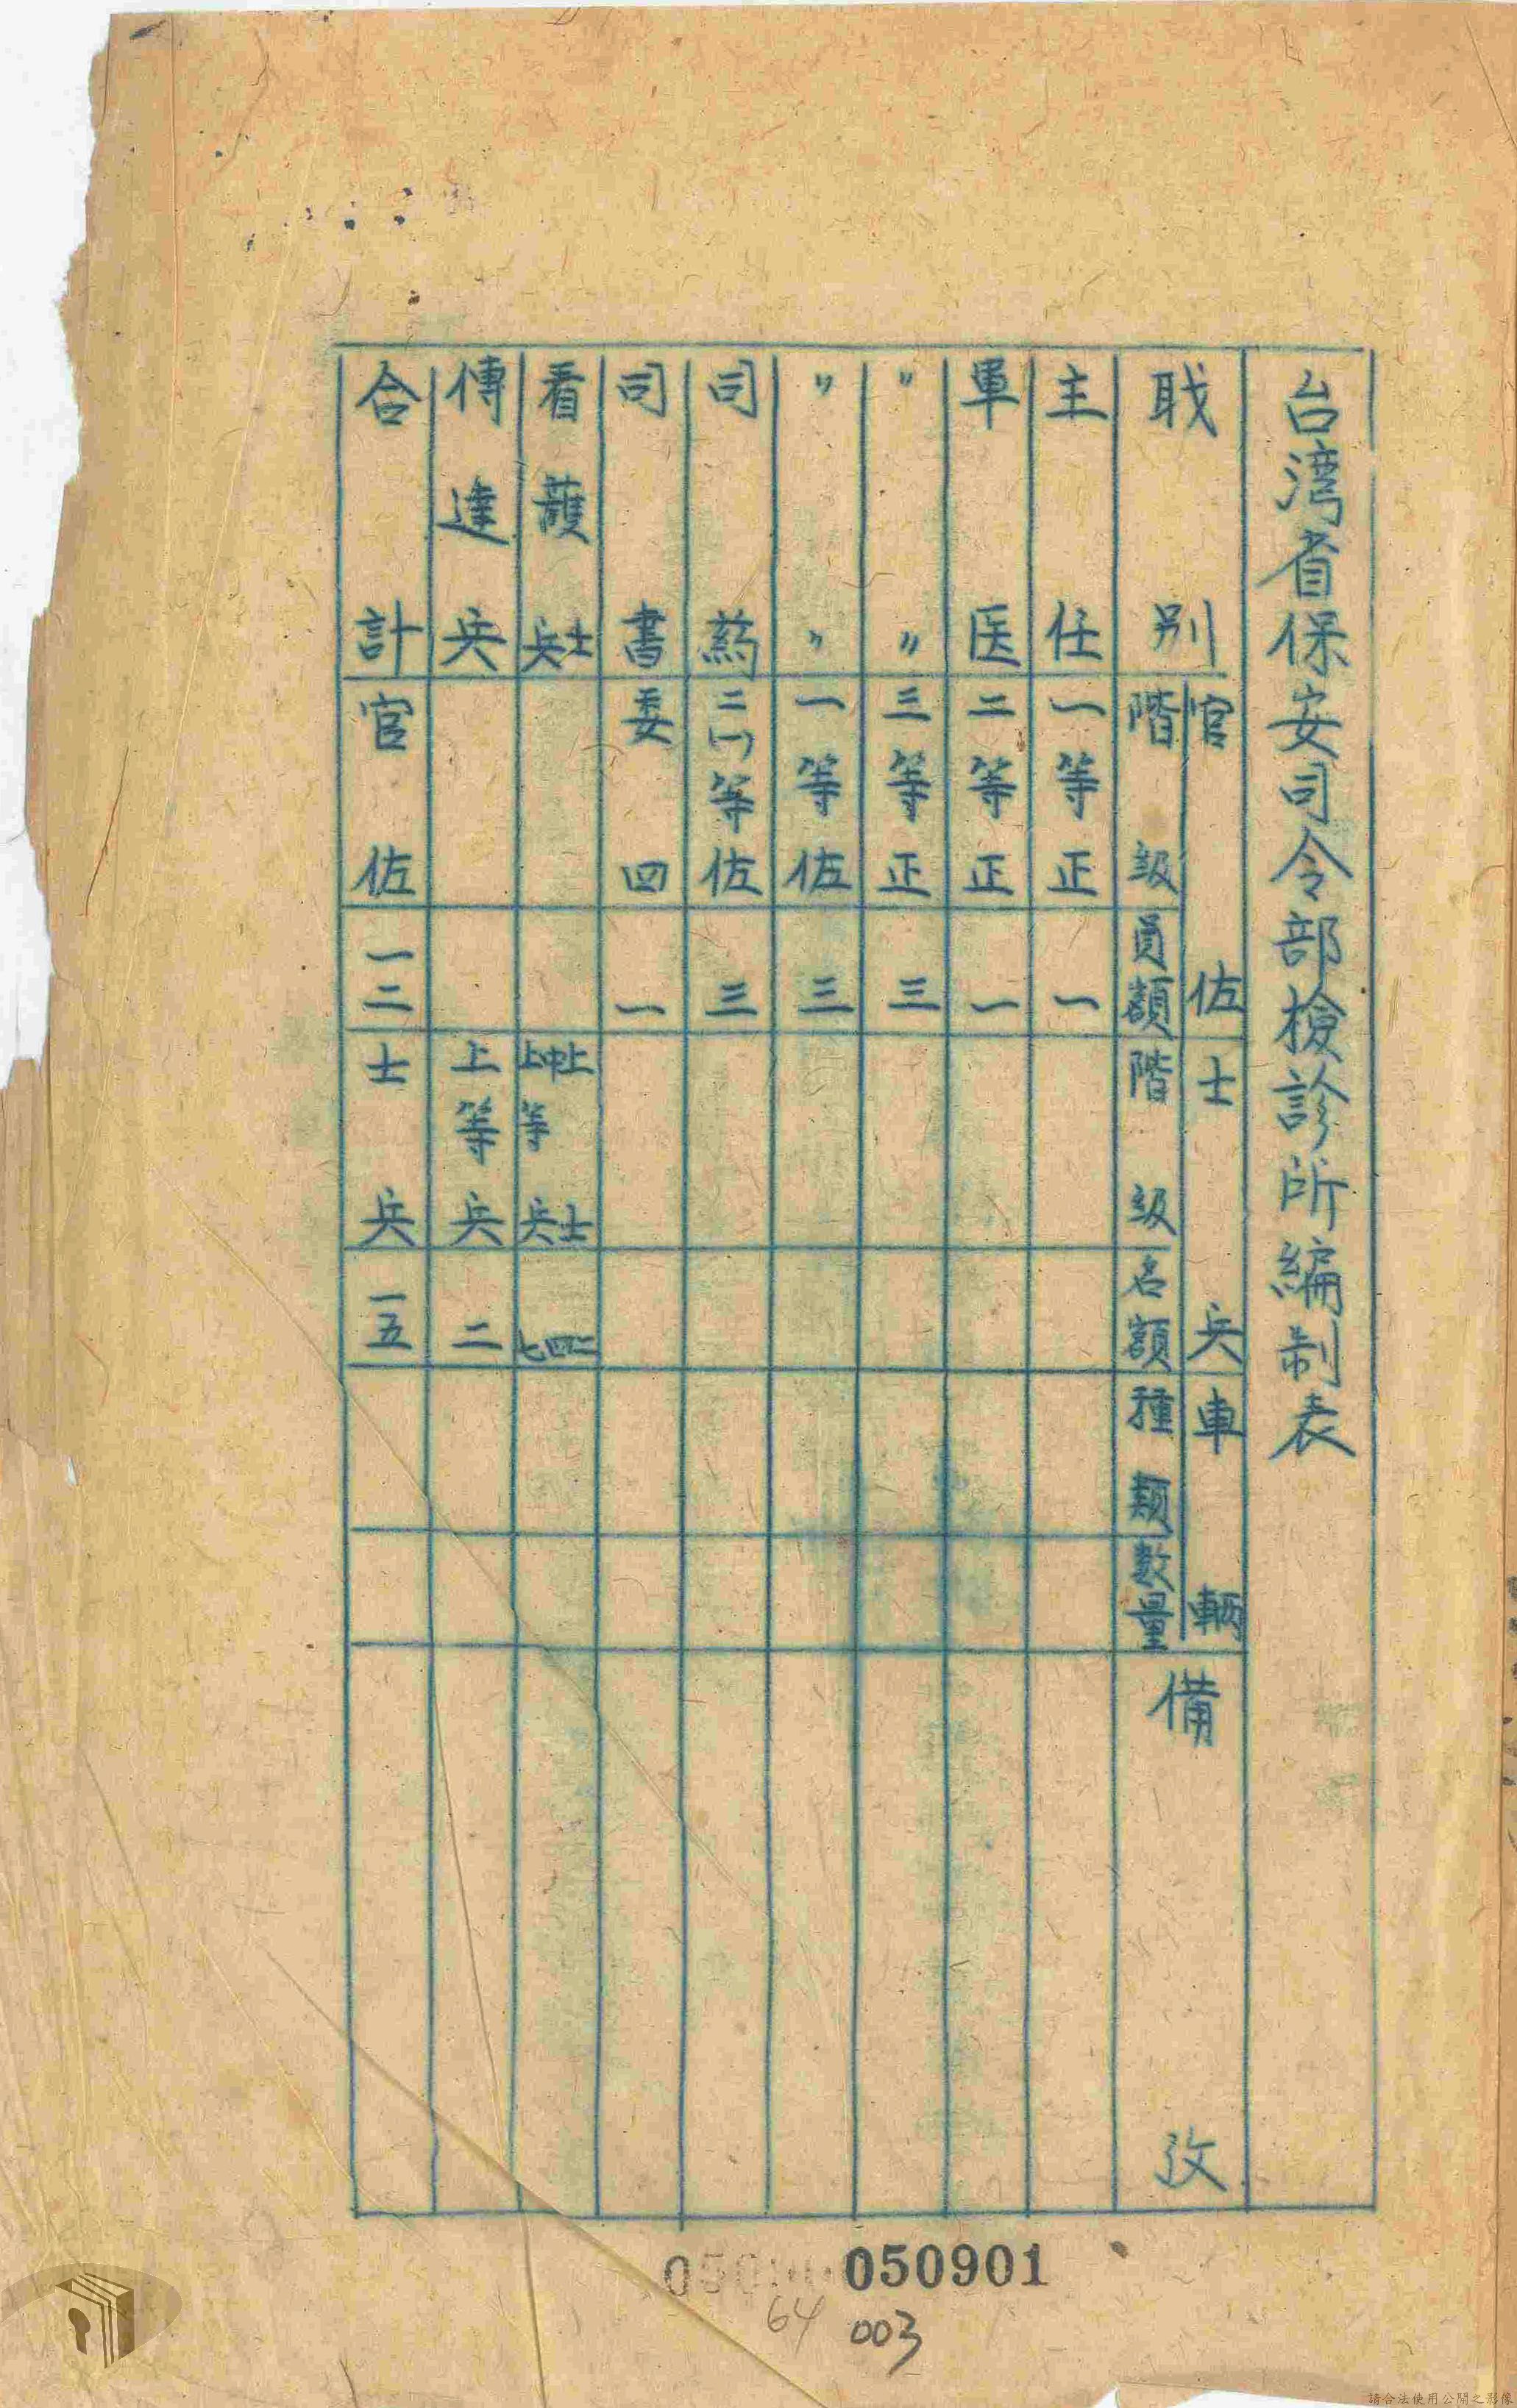 台湾省保安司令部檢診所編制表
職別 官佐 階級 員額 士兵 階級 名額 車輛 種類 數量 備攷
主任 一等正 一
軍医 二等正 一
〃〃 三等正 三
〃〃 一等佐 三
司葯 二(一)等佐 三
司書 委四 一
看護士兵 上中上等士兵 二四七
傳達兵 上等兵 二
合計 官佐 一二 士兵 一五
050901
64
003
請合法使用公開之影像